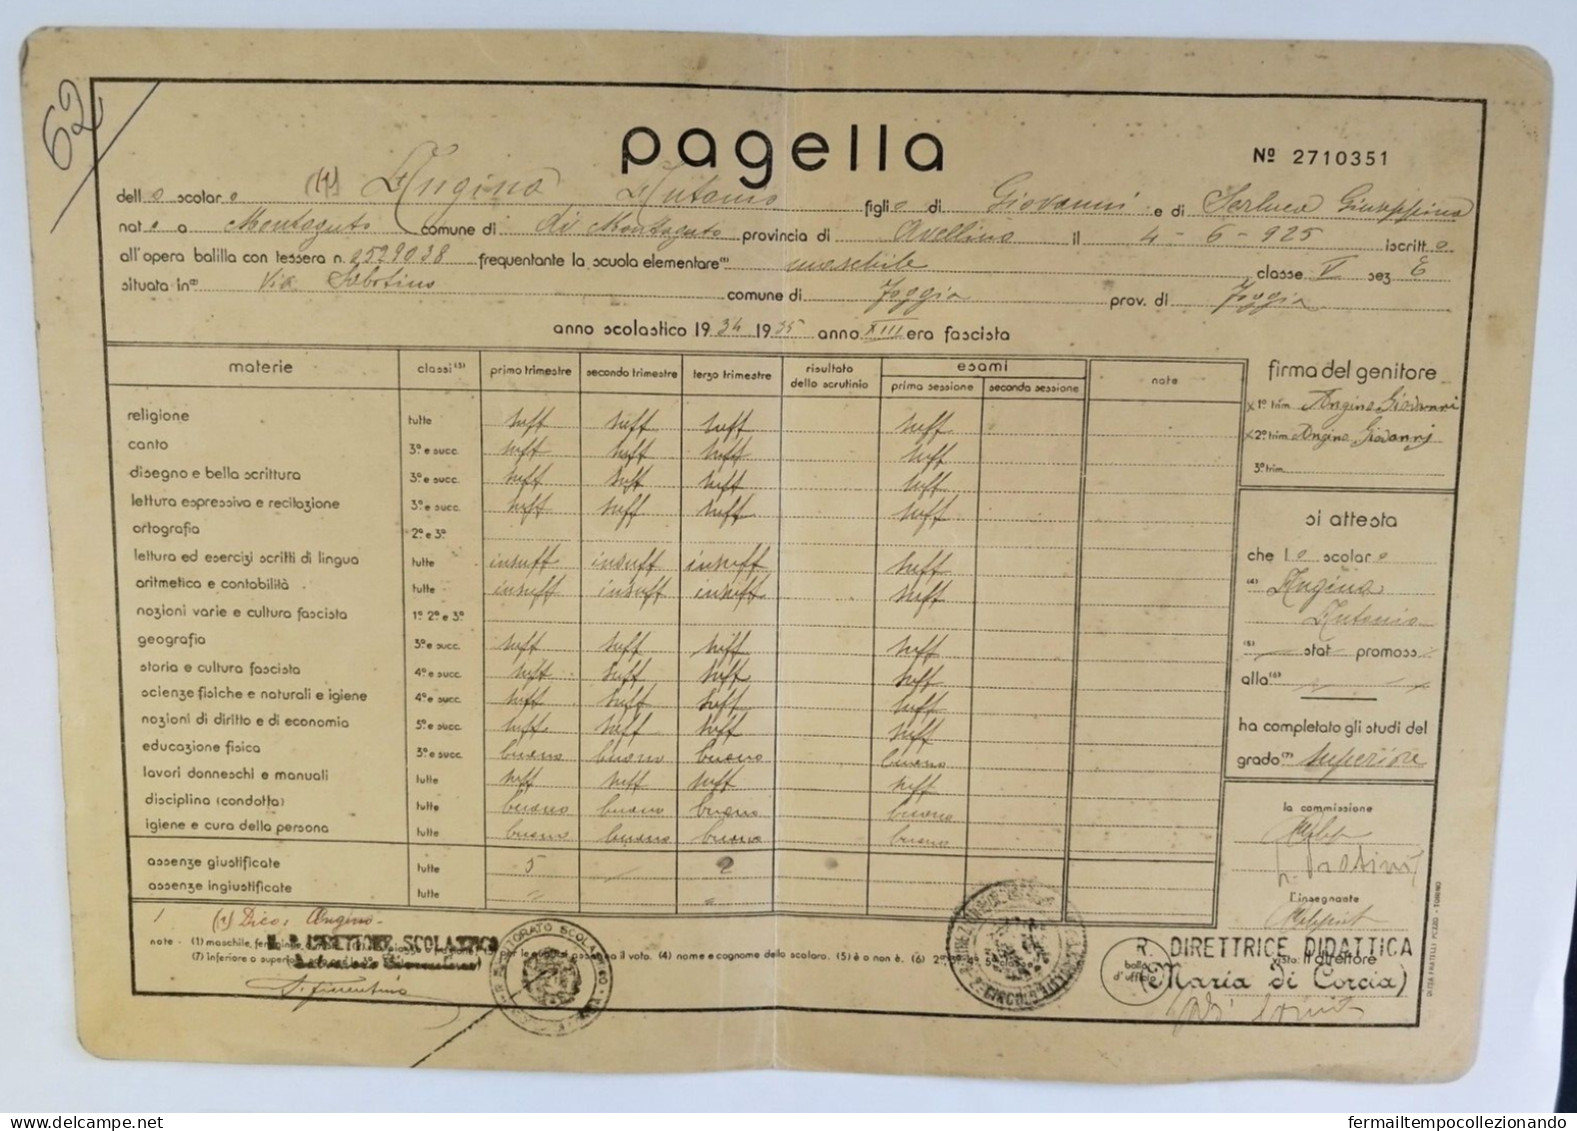 62
pagella
Nº 2710351
dell o scolar o (1) Angino Antonio figli o di Giovanni e di Serluca Giuseppina
nat o a Montaguto comune di di Montaguto provincia di Avellino il 4-6-925 iscritt o
all'opera balilla con tessera n. 2529038 frequentante la scuola elementare (1) maschile classe V sez E
situata in (2) Via Sabotino comune di Foggia prov. di Foggia
anno scolastico 19 34 19 35 anno XIII era fascista
materie classi (3) primo trimestre secondo trimestre terzo trimestre risultato dello scrutinio esami prima sessione seconda sessione note
religione tutte suff suff suff suff
canto 3º e succ. suff suff suff suff
disegno e bella scrittura 3º e succ. suff suff suff suff
lettura espressiva e recitazione 3º e succ. suff suff suff suff
ortografia 2º e 3º
lettura ed esercizi scritti di lingua tutte insuff insuff insuff suff
aritmetica e contabilità tutte insuff insuff insuff suff
nozioni varie e cultura fascista 1º 2º e 3º
geografia 3º e succ. suff suff suff suff
storia e cultura fascista 4º e succ. suff suff suff suff
scienze fisiche e naturali e igiene 4º e succ. suff suff suff suff
nozioni di diritto e di economia 5º e succ. suff suff suff suff
educazione fisica 3º e succ. buono buono buono buono
lavori donneschi e manuali tutte suff suff suff suff
disciplina (condotta) tutte buono buono buono buono
igiene e cura della persona tutte buono buono buono buono
assenze giustificate tutte 5 – 2
assenze ingiustificate tutte " "
firma del genitore
x 1º trim. Angino Giovanni
x 2º trim. Angino Giovanni
3º trim.
si attesta
che l o scolar o
(4) Angino
Antonio
(5) stat promoss
alla (6)
ha completato gli studi del
grado (7) superiore
la commissione
l'insegnante
1 (1) Dico: Angino
note - (1) maschile, per le quali assegna il voto. (4) nome e cognome dello scolaro. (5) è o non è. (6) 2ª
(7) inferiore o superiore
R. DIRETTORE SCOLASTICO
S. Fiorentino
bollo d'ufficio
R. DIRETTRICE DIDATTICA
visto: il direttore
(Maria di Corcia)
DITTA FRATELLI POZZO - TORINO
fermailtempocollezionando